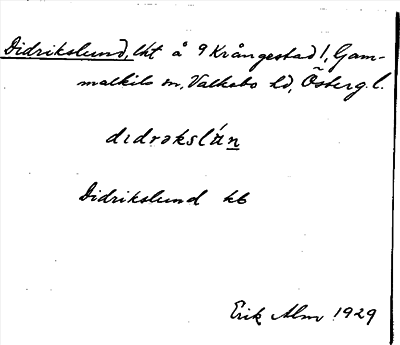 Didrikslund, lht å 9 Krångestad 1, Gam-
malkils sn, Valkebo hd, Österg. l.
dɩdrəkslán
Didrikslund kb
Erik Alm 1929